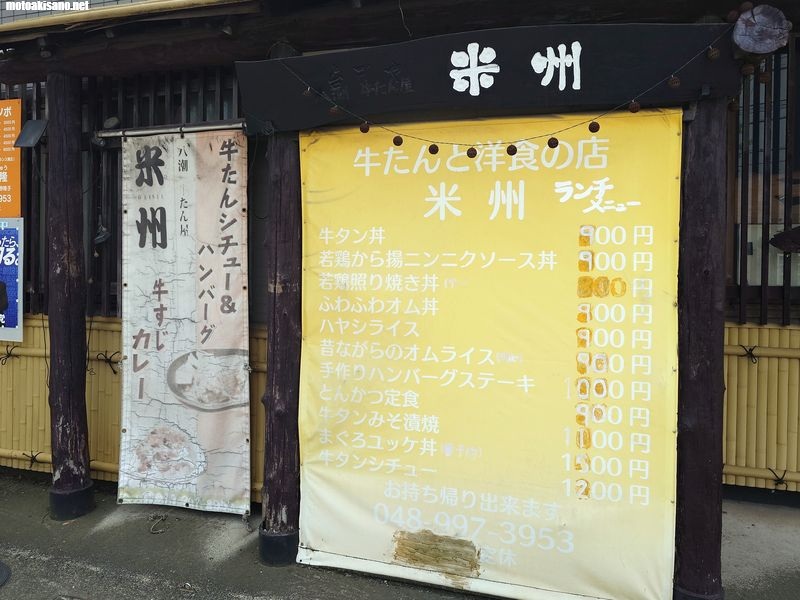 motoakisano.net
米州
牛たんと洋食の店
米州 ランチメニュー
牛タン丼 900円
若鶏から揚ニンニクソース丼 900円
若鶏照り焼き丼 800円
ふわふわオム丼 800円
ハヤシライス 900円
昔ながらのオムライス
手作りハンバーグステーキ
とんかつ定食 900円
牛タンみそ漬焼
まぐろユッケ丼
牛タンシチュー 1200円
お持ち帰り出来ます
048-997-3953
定休
牛たんシチュー&
ハンバーグ
八潮 たん屋
米州
牛すじ
カレー